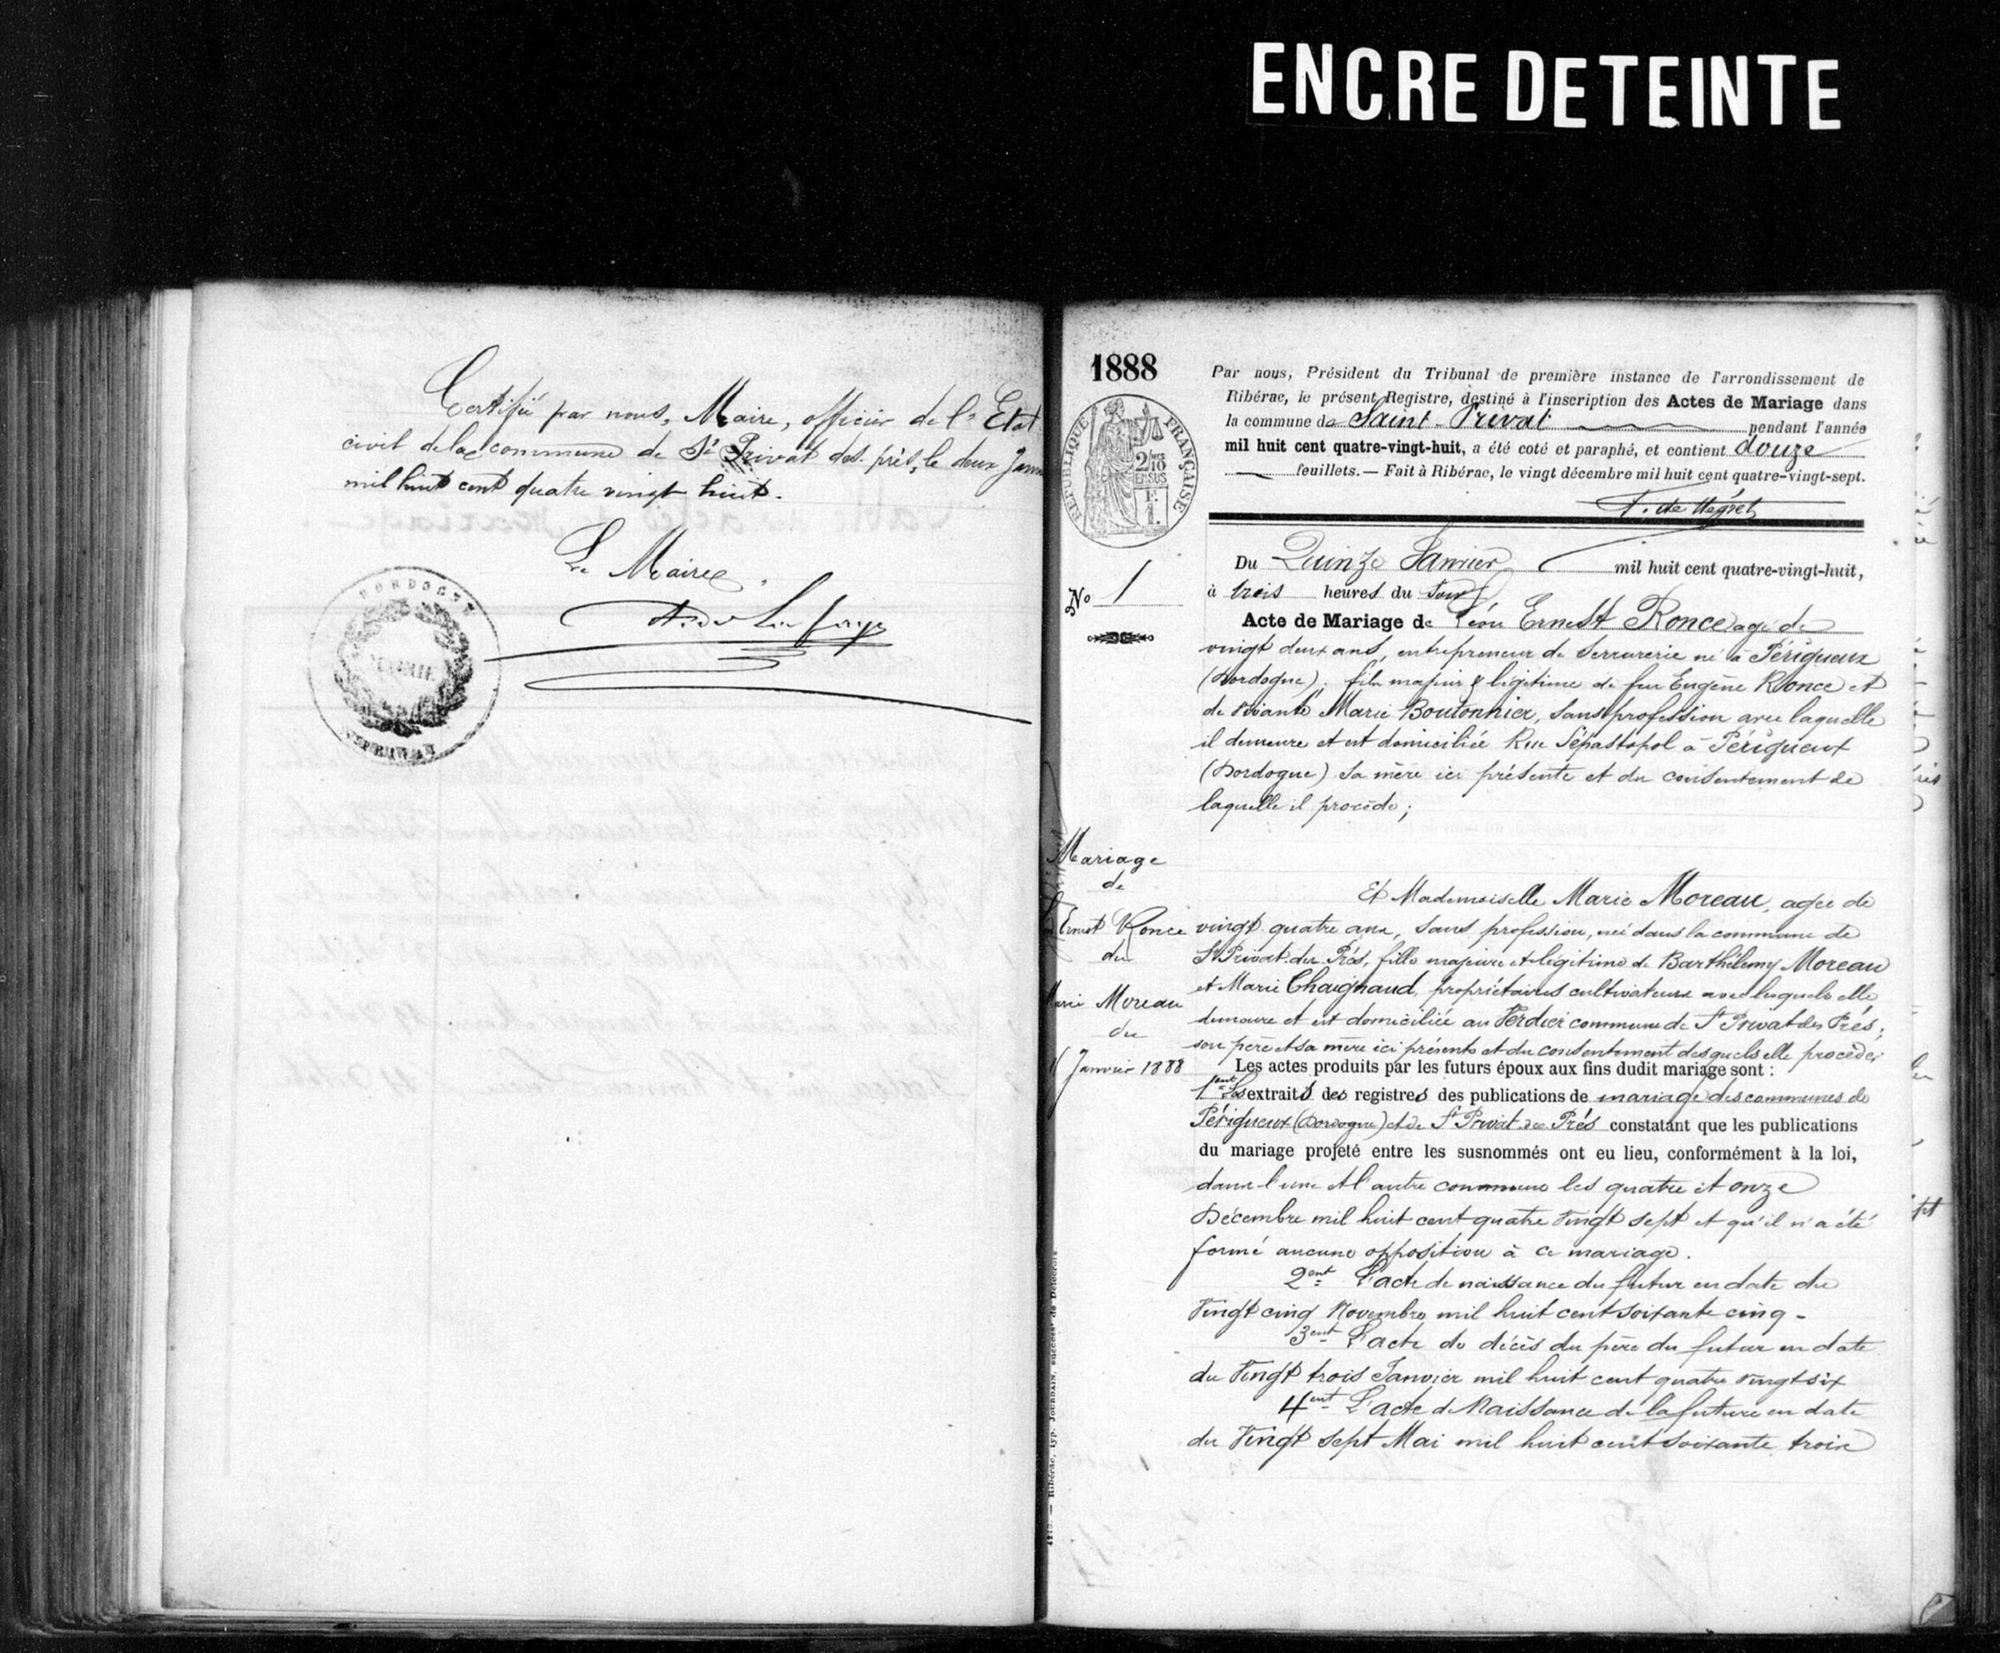 ENCRE DETEINTE
Certifié par nous, Maire, officier de l'Etat
civil de la commune de St Privat des prés, le deux Janv
mil huit cent quatre vingt huit.
Le Maire
DORDOGNE
MAIRIE
1888
RÉPUBLIQUE FRANÇAISE
Par nous, Président du Tribunal de première instance de l'arrondissement de
Ribérac, le présent Registre, destiné à l'inscription des Actes de Mariage dans
la commune de Saint-Privat pendant l'année
mil huit cent quatre-vingt-huit, a été coté et paraphé, et contient douze
feuillets. — Fait à Ribérac, le vingt décembre mil huit cent quatre-vingt-sept.
No 1
Du Quinze Janvier mil huit cent quatre-vingt-huit,
à trois heures du soir
Acte de Mariage de Léon Ernest Ronce agé de
vingt deux ans, entrepreneur de serrurerie né à Périgueux
(Dordogne), fils majeur & légitime de feu Eugène Ronce et
de vivante Marie Boutonnier, sans profession avec laquelle
il demeure et est domiciliée Rue Sépastopol à Périgueux
(Dordogne) sa mère ici présente et du consentement de
laquelle il procède;
Mariage
de
Ernest Ronce
du
Marie Moreau
du
Janvier 1888
Et Mademoiselle Marie Moreau, agée de
vingt quatre ans, sans profession, née dans la commune de
St Privat des Prés, fille majeure et légitime de Barthélemy Moreau
et Marie Chaignaud, propriétaires cultivateurs avec lesquels elle
demeure et est domiciliée au Verdier commune de St Privat des Prés;
son père et sa mère ici présents et du consentement desquels elle procède;
Les actes produits par les futurs époux aux fins dudit mariage sont :
1ent Les extraits des registres des publications de mariage des communes de
Périgueux (Dordogne) et de St Privat des Prés constatant que les publications
du mariage projeté entre les susnommés ont eu lieu, conformément à la loi,
dans l'une et l'autre commune les quatre et onze
Décembre mil huit cent quatre vingt sept et qu'il n'a été
formé aucune opposition à ce mariage.
2ent L'acte de naissance du futur en date du
Vingt cinq Novembre mil huit cent soixante cinq -
3ent L'acte de décès du père du futur en date
du Vingt trois Janvier mil huit cent quatre vingt six
4ent L'acte de Naissance de la future en date
du Vingt sept Mai mil huit cent soixante trois